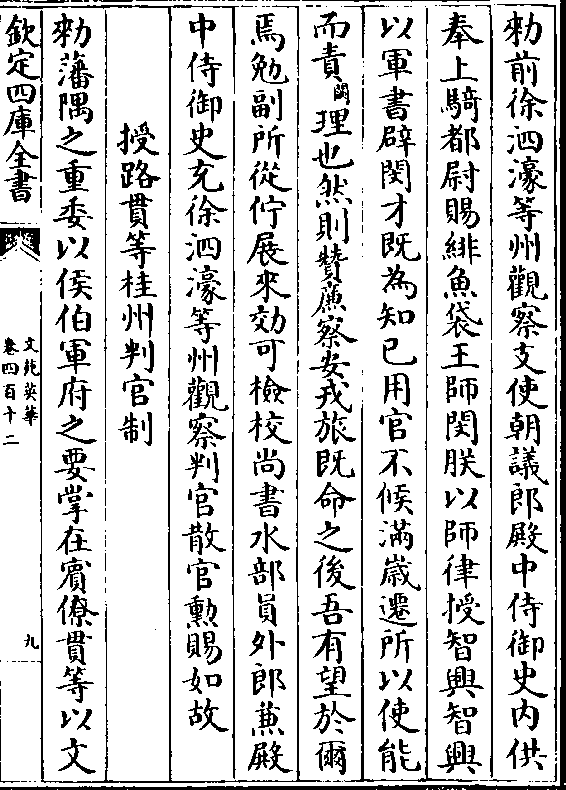 勑前徐泗濠等州觀察支使朝議郎殿中侍御史内供
奉上騎都尉賜緋魚袋王師閔朕以師律授智興智興
以軍書辟閔才既為知已用官不候滿嵗遷所以使能
而責闕理也然則贊亷察安戎旅既命之後吾有望於爾
焉勉副所從佇展來効可檢校尚書水部員外郎兼殿
中侍御史充徐泗濠等州觀察判官散官勲賜如故
授路貫等桂州判官制
勑藩隅之重委以侯伯軍府之要掌在賓僚貫等以文
欽定四庫全書
文苑英華
卷四百十二
九